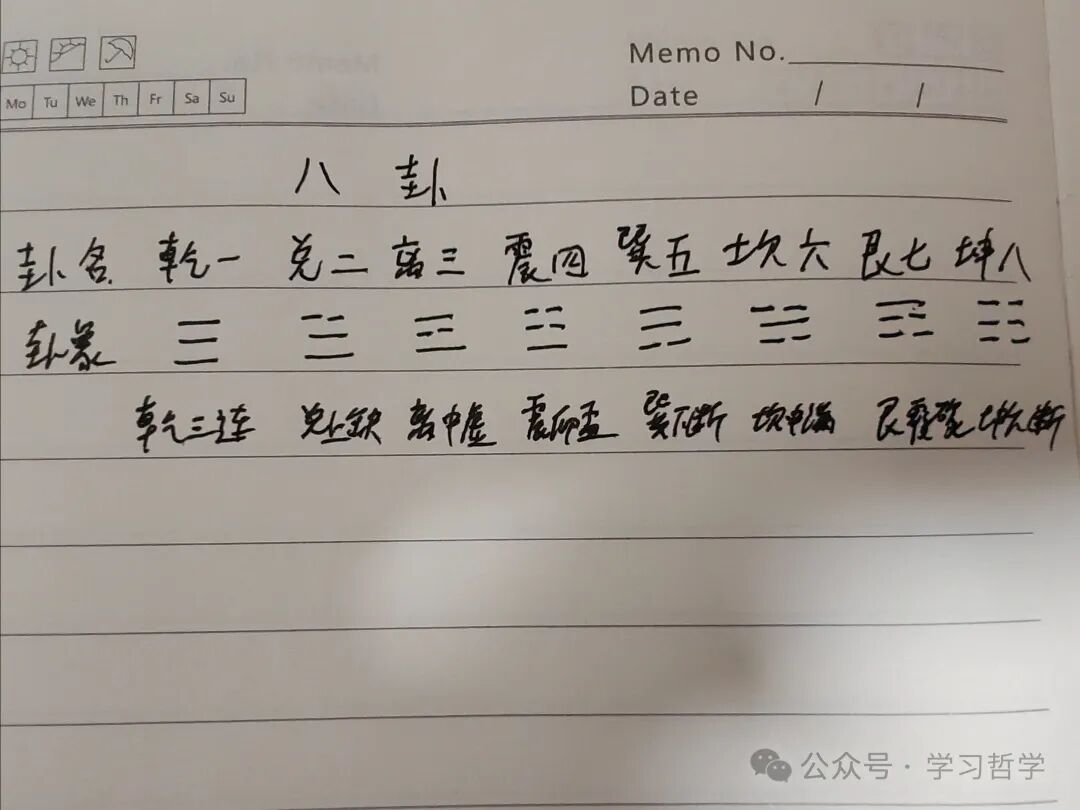 Memo No.
Mo Tu We Th Fr Sa Su
Date / /
八 卦
卦名 乾一 兑二 离三 震四 巽五 坎六 艮七 坤八
卦象 ☰ ☱ ☲ ☳ ☴ ☵ ☶ ☷
乾三连 兑上缺 离中虚 震仰盂 巽下断 坎中满 艮覆碗 坤六断
公众号·学习哲学